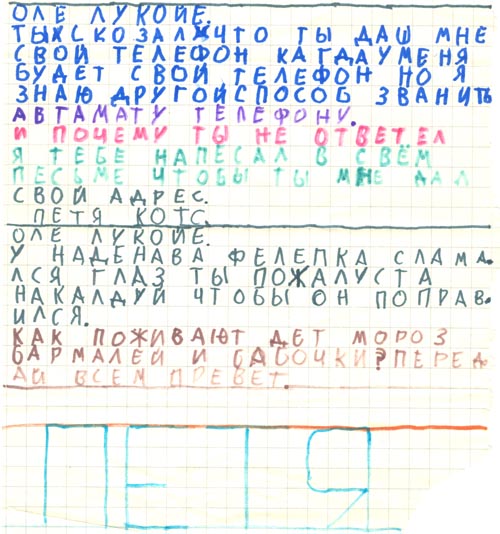 ОЛЕ ЛУКОЙЕ.
ТЫ СКОЗАЛ ЧТО ТЫ ДАШ МНЕ
СВОЙ ТЕЛЕФОН КАГДА У МЕНЯ
БУДЕТ СВОЙ ТЕЛЕФОН НО Я
ЗНАЮ ДРУГОЙ СПОСОБ ЗВАНИТЬ
АВТАМАТУ ТЕЛЕФОНУ.
И ПОЧЕМУ ТЫ НЕ ОТВЕТЕЛ
Я ТЕБЕ НАПЕСАЛ В СВЁМ
ПЕСЬМЕ ЧТОБЫ ТЫ МНЕ ДАЛ
СВОЙ АДРЕС.
ПЕТЯ КОТС.
ОЛЕ ЛУКОЙЕ.
У НАДЕНАВА ФЕЛЕПКА СЛАМА.
ЛСЯ ГЛАЗ ТЫ ПОЖАЛУСТА
НАКАЛДУЙ ЧТОБЫ ОН ПОПРАВ.
ИЛСЯ.
КАК ПОЖИВАЮТ ДЕТ МОРОЗ
БАРМАЛЕЙ И БАБОЧКИ? ПЕРЕД.
АЙ ВСЕМ ПРЕВЕТ.
ПЕТЯ